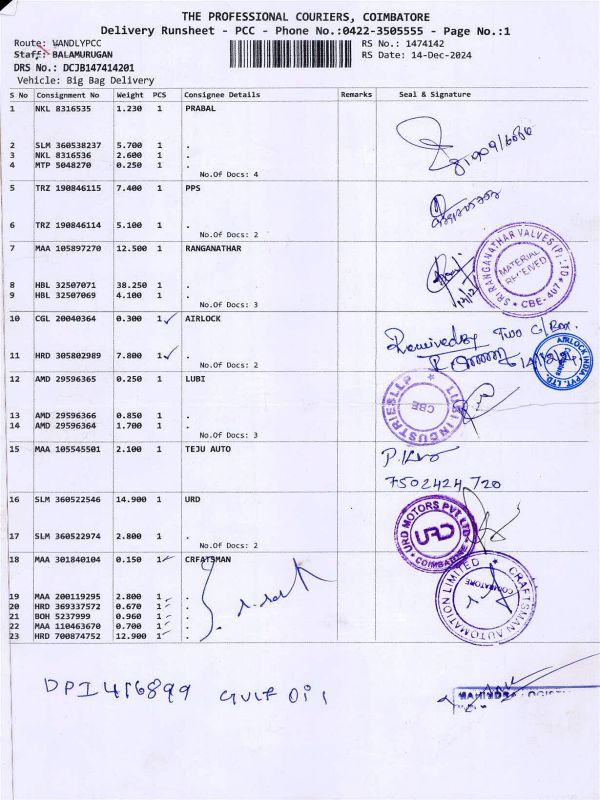 THE PROFESSIONAL COURIERS, COIMBATORE
Delivery Runsheet - PCC - Phone No.:0422-3505555 - Page No.:1
Route: WANDLYPCC
RS No.: 1474142
Staff: BALAMURUGAN
RS Date: 14-Dec-2024
DRS No.: DCJB147414201
Vehicle: Big Bag Delivery
S No Consignment No Weight PCS Consignee Details Remarks Seal & Signature
1 NKL 8316535 1.230 1 PRABAL
2 SLM 360538237 5.700 1 .
3 NKL 8316536 2.600 1 .
4 MTP 5048270 0.250 1 .
No.Of Docs: 4
5 TRZ 190846115 7.400 1 PPS
6 TRZ 190846114 5.100 1 .
No.Of Docs: 2
7 MAA 105897270 12.500 1 RANGANATHAR
SRI RANGANATHAR VALVES (P) LTD
MATERIAL RECEIVED
CBE-407
8 HBL 32507071 38.250 1 .
9 HBL 32507069 4.100 1 .
No.Of Docs: 3
10 CGL 20040364 0.300 1 AIRLOCK
Received by Two C/Box.
AIRLOCK INDIA PVT. LTD.
11 HRD 305802989 7.800 1 .
No.Of Docs: 2
12 AMD 29596365 0.250 1 LUBI
LUBI INDUSTRIES LLP
CBE
13 AMD 29596366 0.850 1 .
14 AMD 29596364 1.700 1 .
No.Of Docs: 3
15 MAA 105545501 2.100 1 TEJU AUTO
7502424720
16 SLM 360522546 14.900 1 URD
URD MOTORS PVT LTD
URD
COIMBATORE
17 SLM 360522974 2.800 1 .
No.Of Docs: 2
18 MAA 301840104 0.150 1 CRFATSMAN
CRAFTSMAN AUTOMATION LIMITED
COIMBATORE
19 MAA 200119295 2.800 1 .
20 HRD 369337572 0.670 1 .
21 BOH 5237999 0.960 1 .
22 MAA 110463670 0.700 1 .
23 HRD 700874752 12.900 1 .
DPI416899 GULF Oil
MAHINDRA LOGISTI